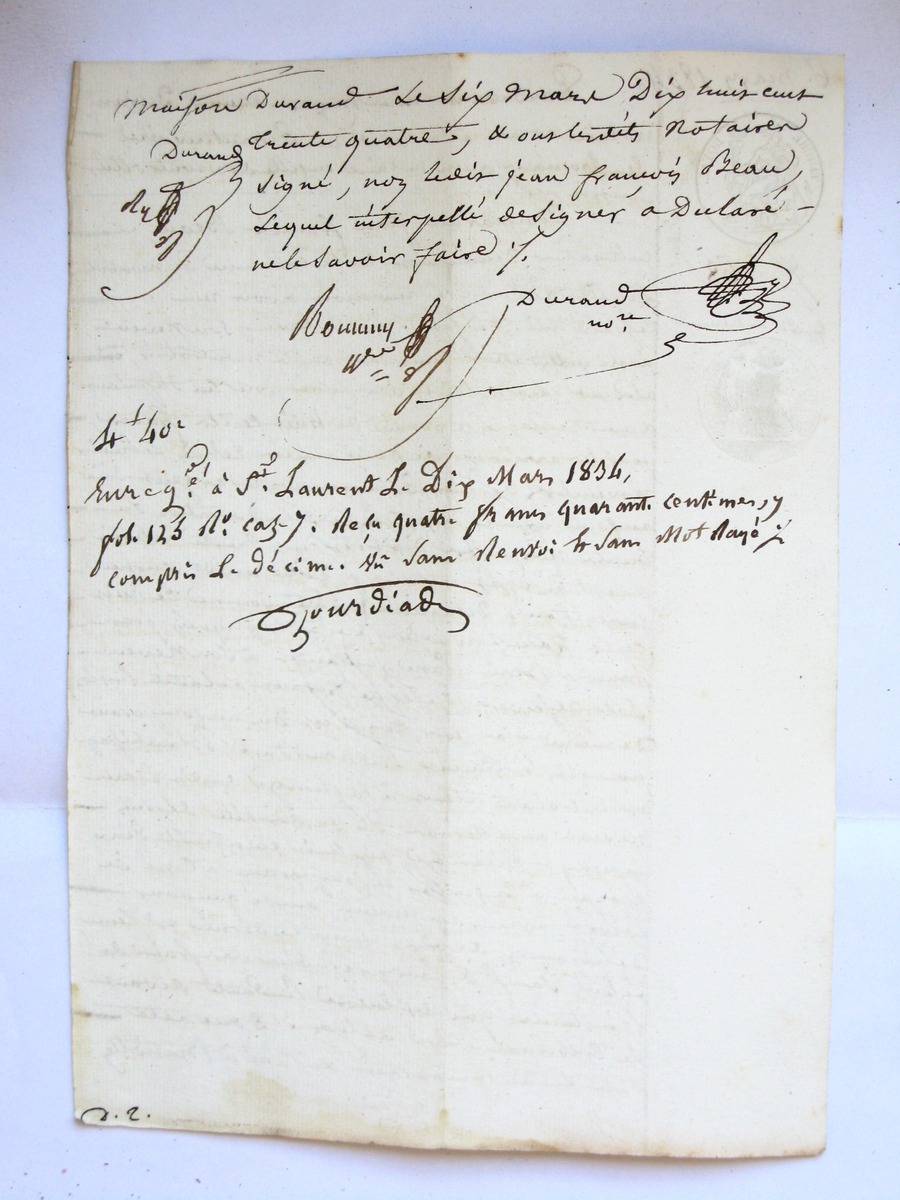 maison Durand Le Six Mars Dix huit cent
trente quatre, & ont lesdits Notaires
Durand
signé, non ledit jean françois Beau,
Lequel interpellé de signer a Déclaré
ne le Savoir faire ./.
Durand
nore
4f 40c
Enregé à St. Laurent Le Dix Mars 1834,
fol. 123 Ro. caze 7. Reçu quatre francs quarante centimes, y
compris Le décime. Sans Renvoi & Sans Mot Rayé ./.
D. 2.